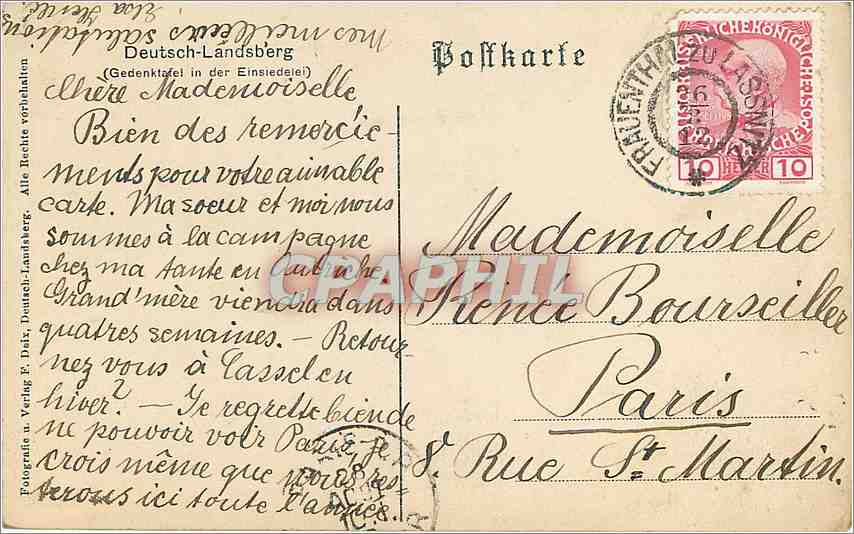 Mes meilleurs salutations,
Elsa
Deutsch-Landsberg
(Gedenktafel in der Einsiedelei)
Chère Mademoiselle
Bien des remercie-
ments pour votre aimable
carte. Ma soeur et moi nous
sommes à la campagne
chez ma tante en Autriche
Grand'mère viendra dans
quatres semaines. - Retour-
nez vous à Cassel en
hiver? - Je regrette bien de
ne pouvoir voir Paris. Je
crois même que nous res-
terons ici toute l'année.
Fotografie u. Verlag F. Deix, Deutsch-Landsberg. Alle Rechte vorbehalten
Postkarte
FRAUENTHAL ZU LASSNITZ
10 HELLER 10
Mademoiselle
Renée Bourseiller
Paris
8. Rue St. Martin.
CPAPHIL